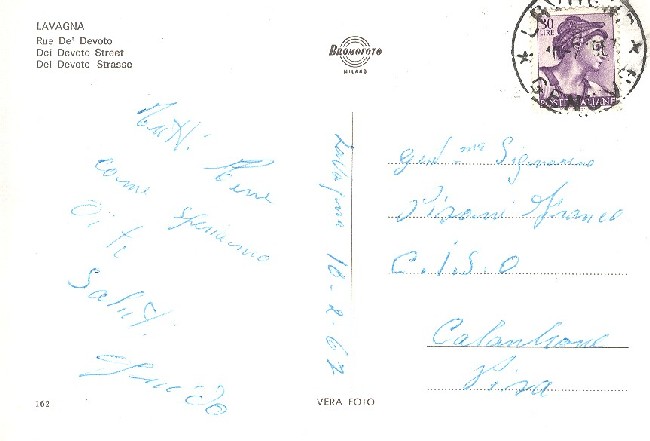 LAVAGNA
Rue De' Devoto
Dei Devoto Street
Dei Devoto Strasse
Bromofoto
MILANO
30
LIRE
POSTE ITALIANE
GENOVA
Tutti bene
come speriamo
di te
Saluti
Lavagna 10-2-67
Gent mo Signorino
Pisani Franco
C.I.S.O
Calambrone
Pisa
162
VERA FOTO